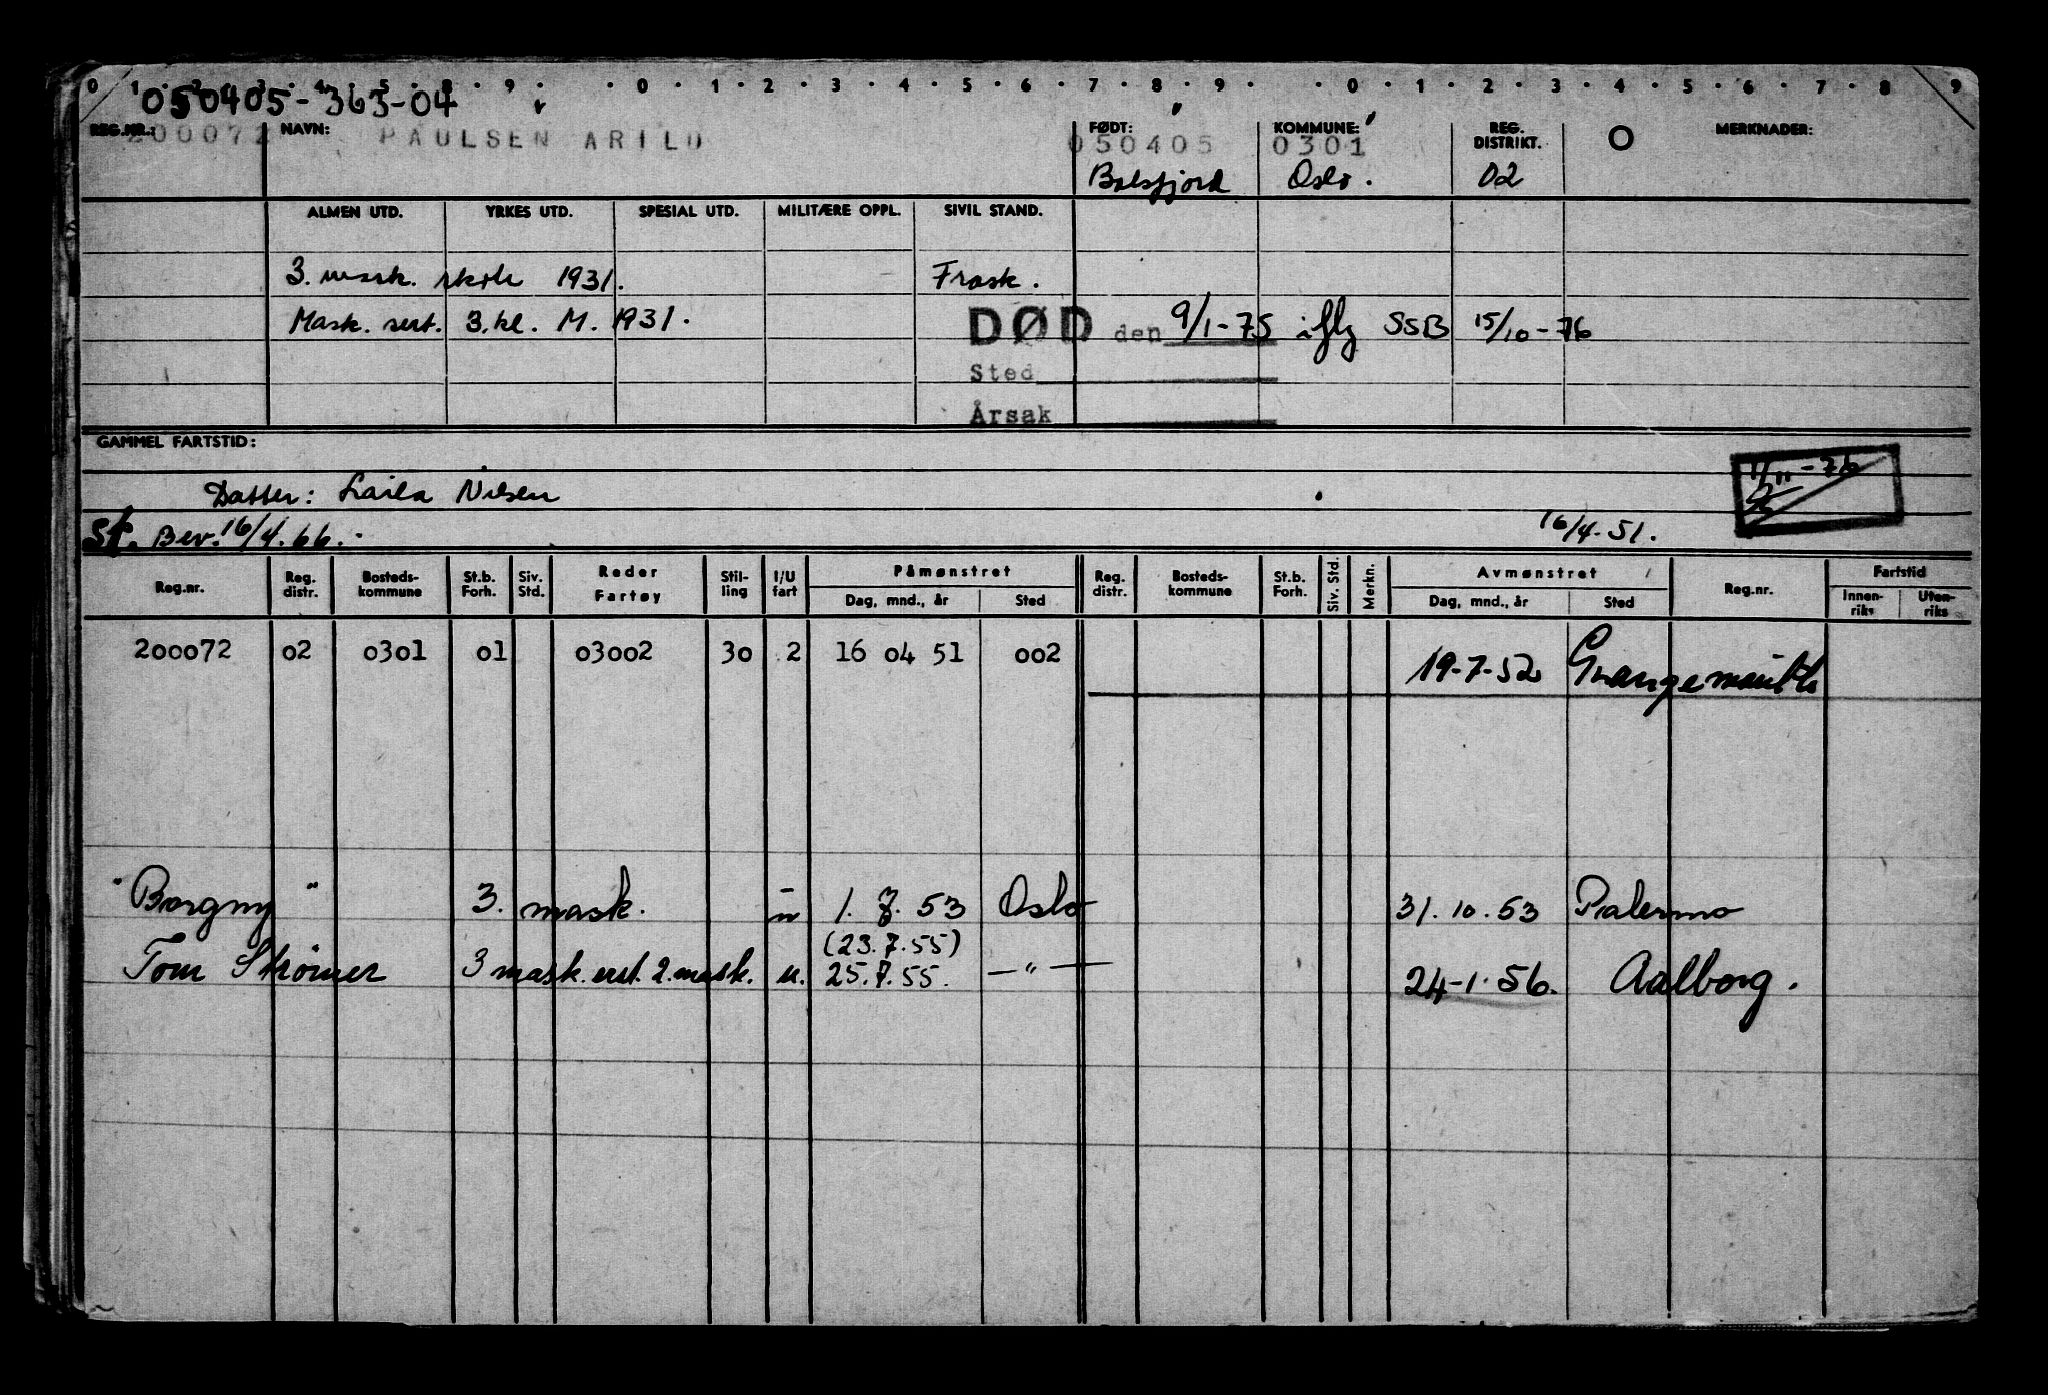 0 1 2 3 4 5 8 9 0 1 2 3 4 5 6 7 8 9 0 1 2 3 4 5 6 7 8 9
050405-363-04
REG.NR.: 200072 NAVN: PAULSEN ARILD FØDT: 050405 KOMMUNE: 0301 REG. DISTRIKT. O MERKNADER:
Balsfjord Oslo. 02
ALMEN UTD. YRKES UTD. SPESIAL UTD. MILITÆRE OPPL. SIVIL STAND.
3. mask. skole 1931. Frask.
Mask. sert. 3. kl. M. 1931. DØD den 9/1-75 iflg SSB 15/10-76
Sted
Årsak
GAMMEL FARTSTID:
1/11-76
Datter: Laila Nilsen
St. Bev. 16/4.66. 16/4-51.
Reg.nr. Reg. distr. Bosteds-kommune St.b. Forh. Siv. Std. Reder Fartøy Stil-ling I/U fart Påmønstret Dag, mnd., år Sted Reg. distr. Bosteds-kommune St.b. Forh. Siv. Std. Merkn. Avmønstret Dag, mnd., år Sted Reg.nr. Fartstid Innen-riks Uten-riks
200072 02 0301 01 03002 30 2 16 04 51 002 19-7-52 Grangemouth
"Borgny" 3. mask. u 1. 7. 53 Oslo 31.10.53 Palermo
(23.7.55)
Tom Strømer 3 mask. erst. 2. mask. u. 25.7.55. —"— 24-1-56. Aalborg.